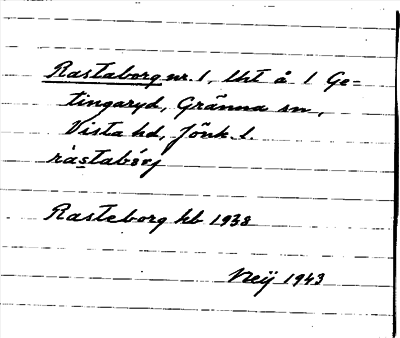 Rastaborg nr. 1, lht å 1 Ge=
tingaryd, Gränna sn,
Vista hd, Jönk. l.
ràstabórj
Rasteborg hb 1938
Neij 1943